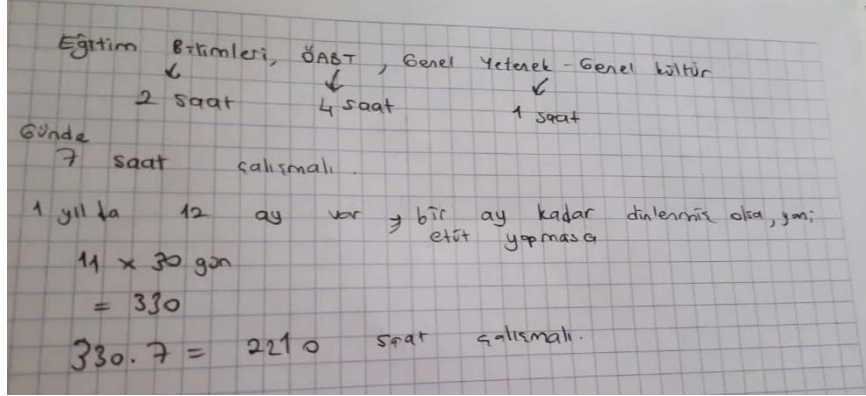 Eğitim Bilimleri, ÖABT, Genel Yetenek - Genel kültür
2 saat 4 saat 1 saat
Günde
7 saat çalışmalı.
1 yılda 12 ay var, bir ay kadar dinlenmiş olsa, yani
etüt yapmasa
11 x 30 gün
= 330
330.7 = 2210 saat çalışmalı.